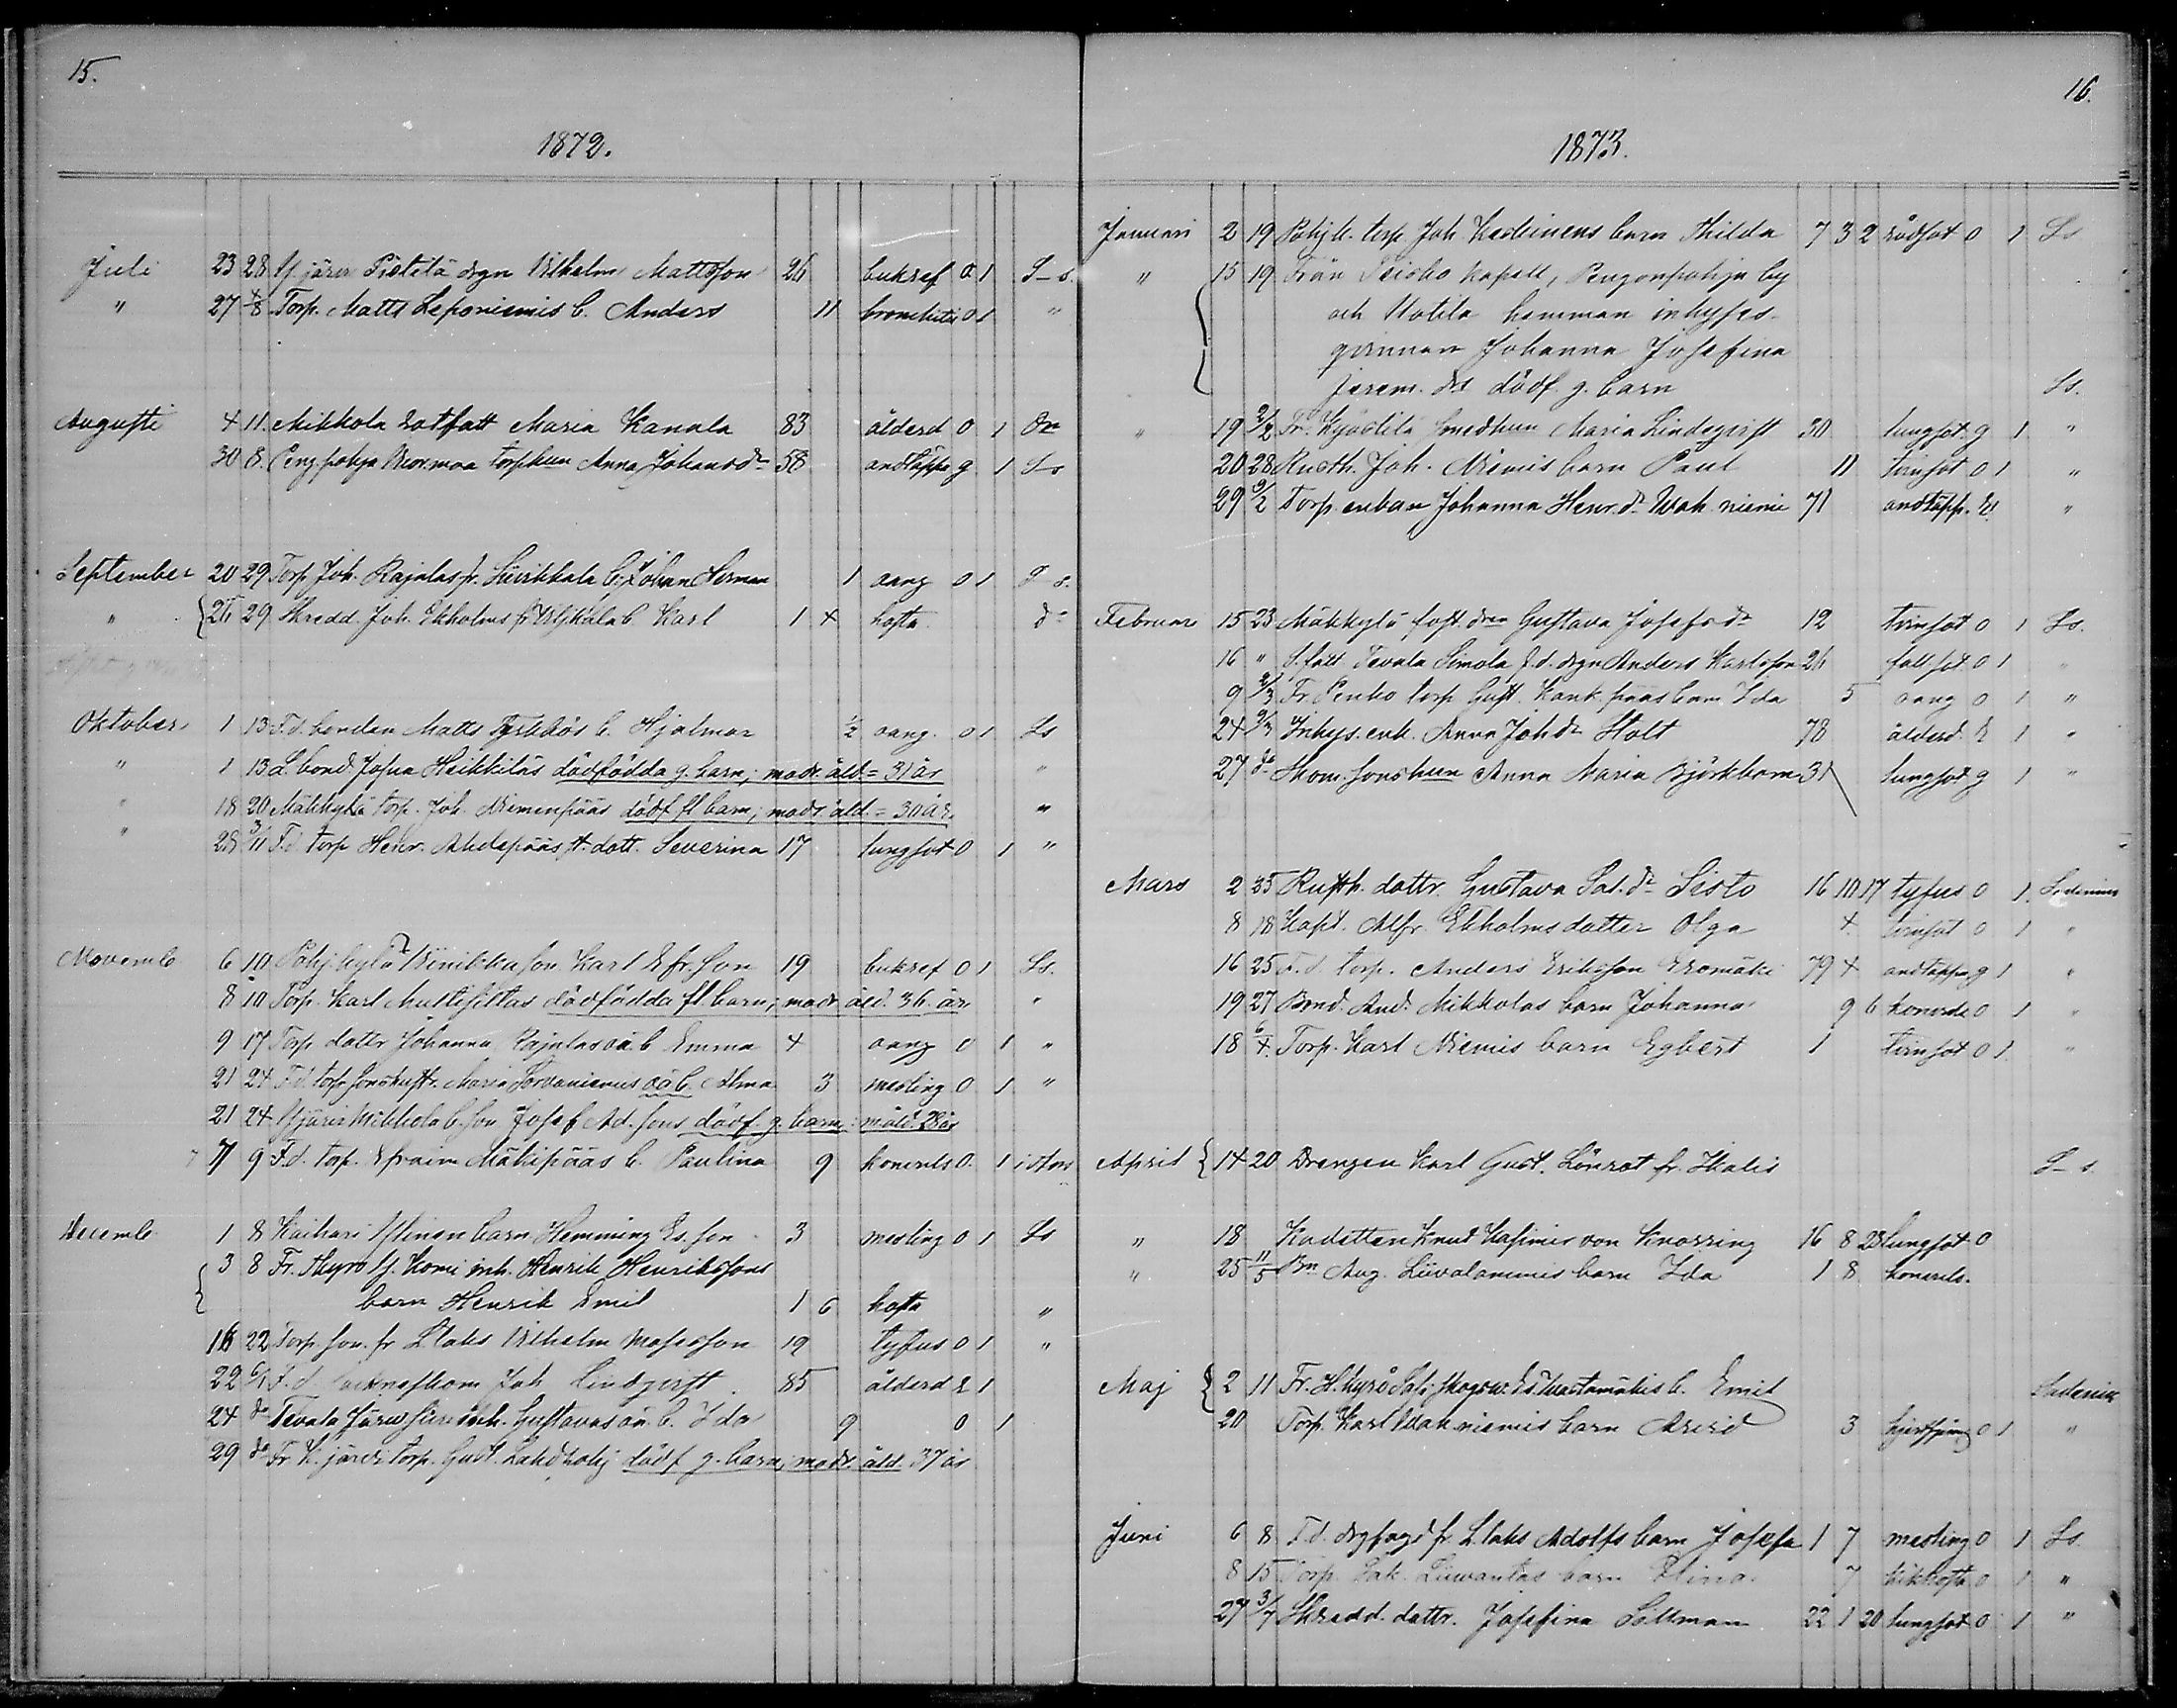 15.
1872.
Juli 23 28 Hjärvi Pietilä drgn Vilhelm Mattsson 26 bukref o 1 S-s.
" 27 4/8 Torp. Matts Leponiemis b. Anders 11 bronchitis o 1 "
Augusti 4 11 Mikkola rotfatt Maria Kanala 83 ålderd o 1 Dn
30 8 Peng.pohja torphun Anna Johansdr 58 andtäppa g 1 Ss
September 20 29 Torp. Joh. Rajalas fr. Siirikkala b. Johan Herman 1 oang o 1 S s.
" 26 29 Skredd. Joh. Ekholms fr. b. Karl 1 4 hosta do
Oktober 1 13 F.d. bonden Matts b. Hjalmar 1/2 oang. o 1 Ss
" 1 13 L. bond. Josua Heikkiläs dödfödda g. barn; modr. åld. = 31 år "
" 18 20 Mäkkylä torp. Joh. Niemenpääs dödf. fl. barn; modr. åld. = 30 år. "
" 28 3/11 F.d. torp Henr. Ahdepääs st. dott. Severina 17 lungsot o 1 "
Novemb 6 10 Pohj.kylä Vinikka son Karl Efr.son 19 bukref o 1 Ss.
8 10 Torp. Karl Mustisiltas dödfödda fl. barn; modr. åld. 36 år. "
9 17 Torp. dottr Johanna Rajalas oä. b. Emma 4 oang o 1 "
21 24 F.d. torp. Maria Sorvaniemis oä. b. Alma 3 mesling o 1 "
21 24 Hjärvi Mikkola b. son Josef Ad.sons dödf. g. barn; m. åld. 28 år
7 9 F.d. torp. Efraim Mäkipääs b. Paulina 9 konvuls o. 1
Decemb. 1 8 Kaihari barn Hemming Es.son 3 mesling o 1 Ss
3 8 Fr. Kyro H. Komi inh. Henrik Henrikssons
barn Henrik Emil 1 6 hosta "
16 22 Torp. son fr. L.laks Vilhelm Mosesson 19 tyfus o 1 "
22 6/1 F.d. Joh Lindqvist 85 ålderd E 1
24 do Tevala Järvi inh. Gustavas oä. b. Ida 9 o 1
29 do Fr K.järvi torp. Gust. dödf. g. barn; modr. åld. 37 år
16.
1873.
Januari 2 19 Pohj.k. torp. Joh. barn Hilda 7 3 2 rödsot o 1 Ss
" 15 19 Från Teisko kapell, Pengonpohja by
och Uotila hemman inhyses-
qvinnan Johanna Josefina
Jerem. drs dödf. g. barn Ss.
" 19 2/2 Fr. Kyöstilä smedhun Maria Lindqvist 30 lungsot g 1 "
20 28 Rusth. Joh. Niemis barn Paul 11 tvinsot o 1 "
29 9/2 Torp. enkan Johanna Henr.dr Wah.niemi 71 andtäpp. E "
Februari 15 23 Mäkkylä fost.dran Gustava Josefsdr 12 tvinsot o 1 Ss.
16 " S.fält. Tevala Simola f.d. drgn Anders Karlsson 26 fallsot o 1 "
9 2/3 Fr Penko torp Gust. Kank.pääs barn Ida 5 oang o 1 "
24 9/3 Inhys. enk. Anna Joh.dr Stolt 78 ålderd. E 1 "
27 do Skom. sonshun Anna Maria Björkbom 31 lungsot g 1 "
Mars 2 25 Rusth. dottr. Gustava Sal.dr Sisto 16 10 17 tyfus o 1.
8 18 Kapt. Alfr. Ekholms dotter Olga 4 tvinsot o 1 "
16 25 F.d. torp. Anders Eriksson Eromäki 79 4 andtäppa g 1 "
19 27 Bond. And. Mikkolas barn Johanna 9 6 konvuls o 1 "
18 6/4 Torp. Karl Niemis barn Egbert 1 tvinsot o 1. "
April 14 20 Drengen Karl Gust. Lönrot fr. Ikalis S-s.
" 18 Kadetten Knut Kasimir von Knorring 16 8 23 lungsot o
" 25 11/5 Bn Aug. Liuvalammis barn Ida 1 8 konvuls.
Maj 2 11 Fr. H.kyrö b. Emil
20 Torp. Karl Wahniemis barn Arvid 3 o 1 "
Juni 6 8 F.d. drgfogd fr. L.laks Adolfs barn Josefa 1 7 mesling o 1 Ss.
8 15 Torp. Isak. Liuvantas barn Elina 7 kikhosta o 1 "
27 3/7 Skredd. dottr. Josefina Sältman 22 1 20 lungsot o 1 "